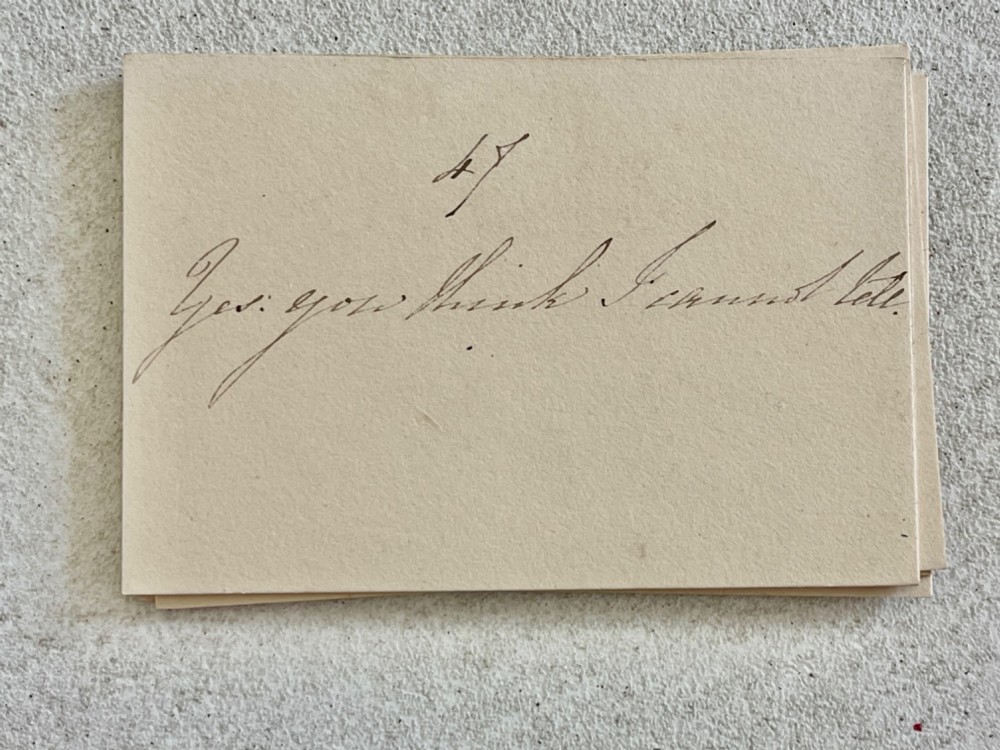 47
Yes: you think I cannot tell.